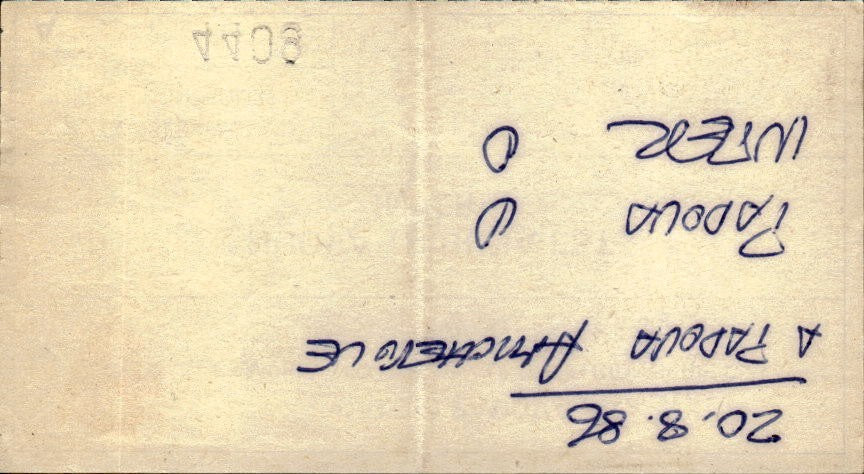 20.8.86
A PADOVA AMICHEVOLE
PADOVA 0
INTER 0